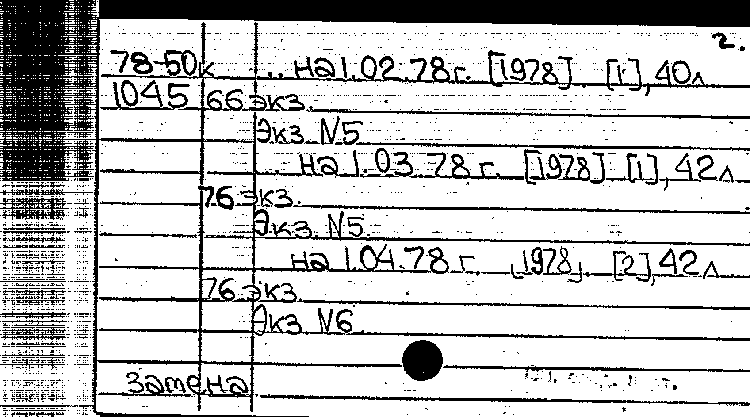 2.
78-50к ... на 1.02.78г. [1978]. [1], 40л
1045 66 экз.
Экз. N5
... на 1.03.78 г. [1978] [1], 42л
76 экз.
Экз. N5
на 1.04.78 г. [1978]. [2], 42л
76 экз.
Экз. N6
Замена